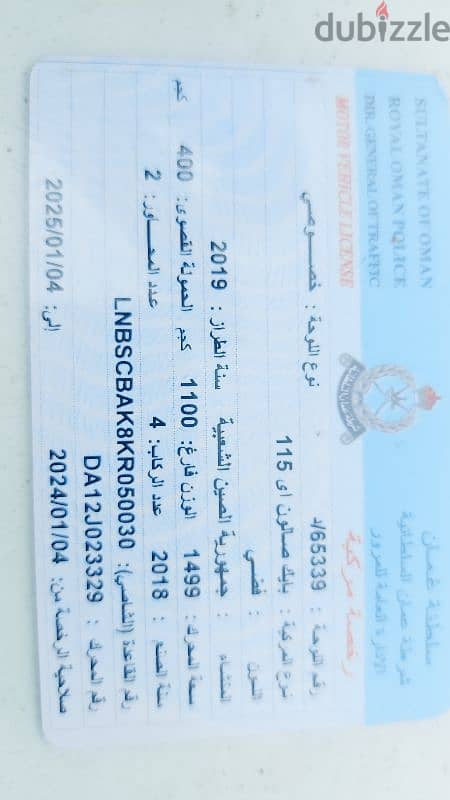 dubizzle
سلطنة عمان
شرطة عمان السلطانية
الإدارة العامة للمرور
SULTANATE OF OMAN
ROYAL OMAN POLICE
DIR. GENERAL OF TRAFFIC
رخصة مركبة
MOTOR VEHICLE LICENSE
رقم اللوحة : 65339/د نوع اللوحة : خصـــوصي
نوع المركبة : بايك صالون اى 115
اللون : فضي
المنشاء : جمهورية الصين الشعبية سنة الطراز : 2019
سعة المحرك : 1499 الوزن فارغ: 1100 كجم الحمولة القصوى: 400 كجم
سنة الصنع : 2018 عدد الركاب: 4 عدد المحـــاور: 2
رقم القاعدة (الشاصي): LNBSCBAK8KR050030
رقم المحرك : DA12J023329
صلاحية الرخصة من: 2024/01/04 إلى: 2025/01/04